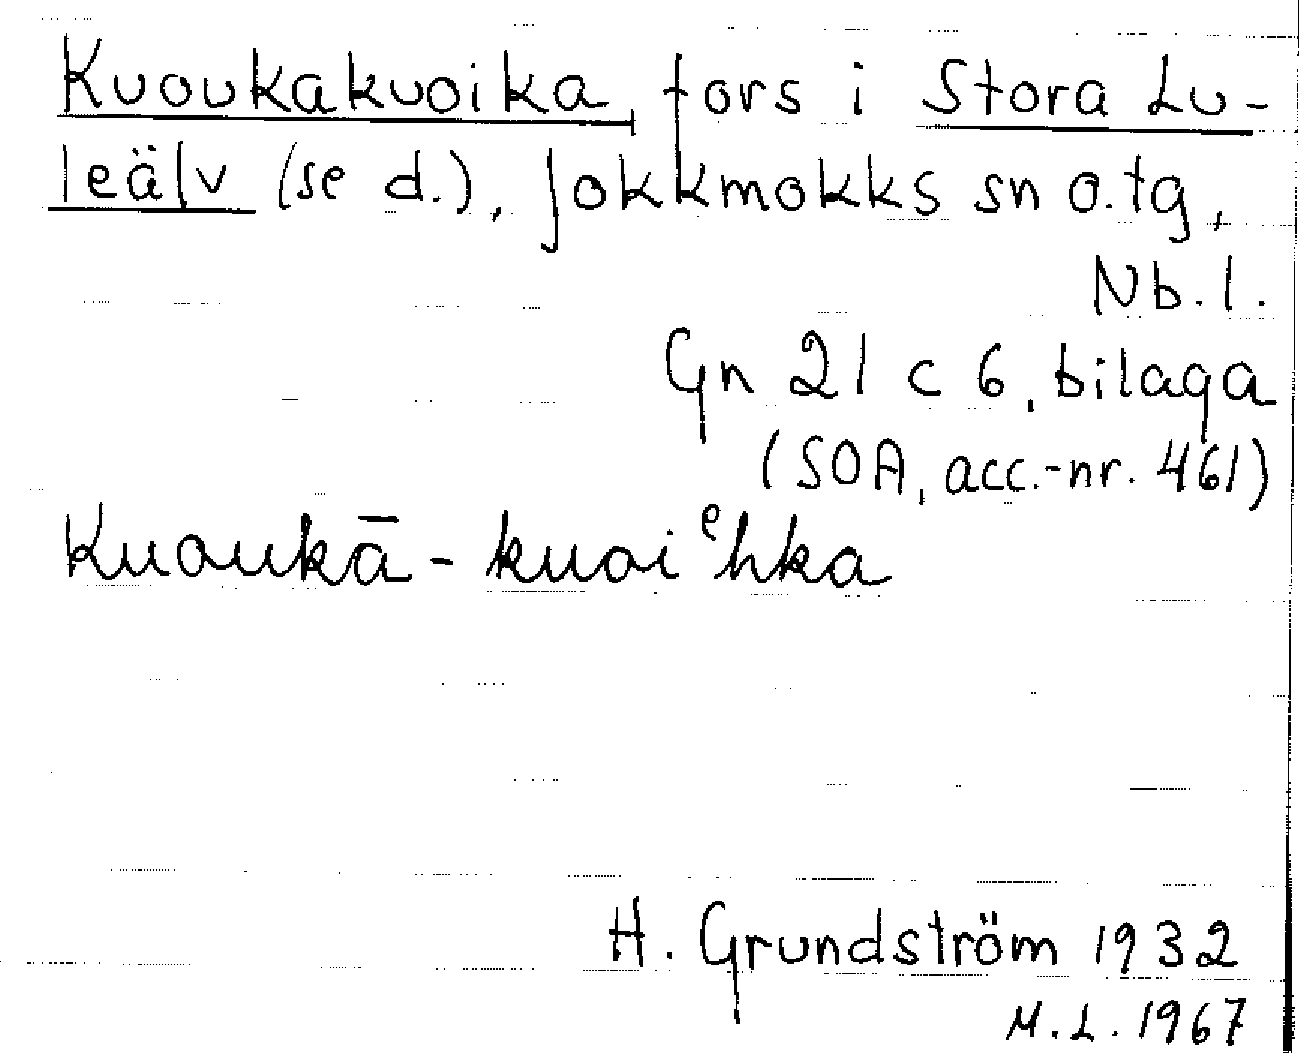 Kuoukakuoika, fors i Stora Lu-
leälv (se d.), Jokkmokks sn o. tg,
Nb. l.
Gn 21 c 6, bilaga
(SOA, acc.-nr. 461)
Kuoukā - kuoiᵉhka
H. Grundström 1932
M.L. 1967